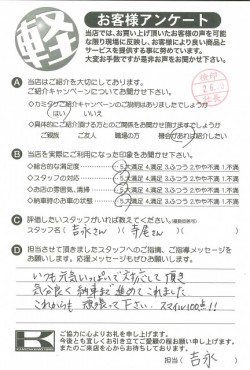 軽
お客様アンケート
当店では、お買い上げ頂いたお客様の声を可能
な限り現場に反映し、お客様により良い商品と
サービスを提供する事に努めています。
大変お手数ですが是非お声をお聞かせ下さい。
A 当店はご紹介を大切にしております。
ご紹介キャンペーンについてお聞かせ下さい。
◇カミタケご紹介キャンペーンのご説明はありましたでしょうか
はい いいえ
◇具体的にご紹介頂ける方とのご関係をお聞かせ頂けますでしょうか
ご親族 ご友人 職場の方 機会があれば紹介したい
B 当店を実際にご利用になった印象をお聞かせ下さい。
◇総合的な満足度 5.大満足 4.満足 3.ふつう 2.やや不満 1.不満
◇スタッフの対応 5.大満足 4.満足 3.ふつう 2.やや不満 1.不満
◇お店の雰囲気、清掃 5.大満足 4.満足 3.ふつう 2.やや不満 1.不満
◇納車時のお車の状態 5.大満足 4.満足 3.ふつう 2.やや不満 1.不満
C 評価したいスタッフがいれば教えてください。(複数回答可)
スタッフ名( 吉永さん )( 寺尾さん )
D 担当させて頂きましたスタッフへのご指摘、ご指導メッセージを
お願いします。応援メッセージもぜひお願いします。
いつも元気いっぱいで対応して頂き
気分良く納車まで進めてくれました
これからも頑張って下さい。スマイル100点!!
ご協力に心よりお礼を申し上げます。
今後とも宜しくお引き立てご愛顧の程お願い申し上げます。
またのご来店を心からお待ちしております。
担当( 吉永 )